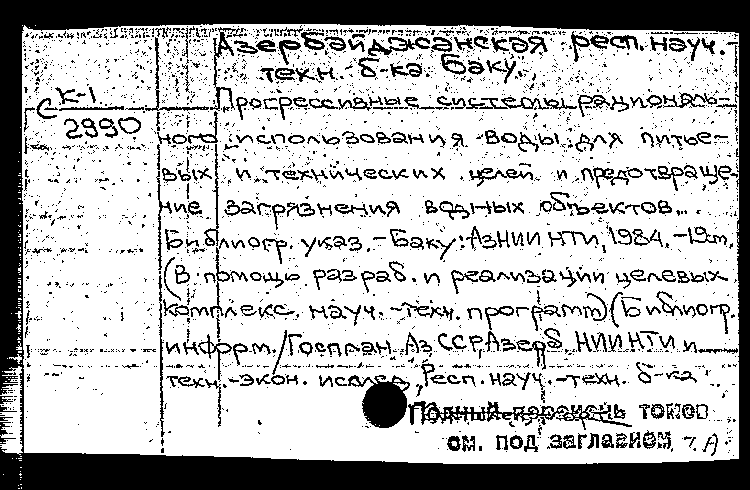 Азербайджанская респ. науч.-
техн. б-ка. Баку.
С К-1
2990
Прогрессивные системы рациональ-
ного использования воды для питье-
вых и технических целей и предотвраще-
ние загрязнения водных объектов...
Библиогр. указ. - Баку: АзНИИНТИ, 1984. - 19 т.
(В помощь разраб. и реализации целевых
комплекс. науч.-техн. программ) (Библиогр.
информ. / Госплан АзССР, Азерб. НИИНТИ и
техн.-экон. исслед., Респ. науч.-техн. б-ка
Полный перечень томов
см. под заглавием ч. А